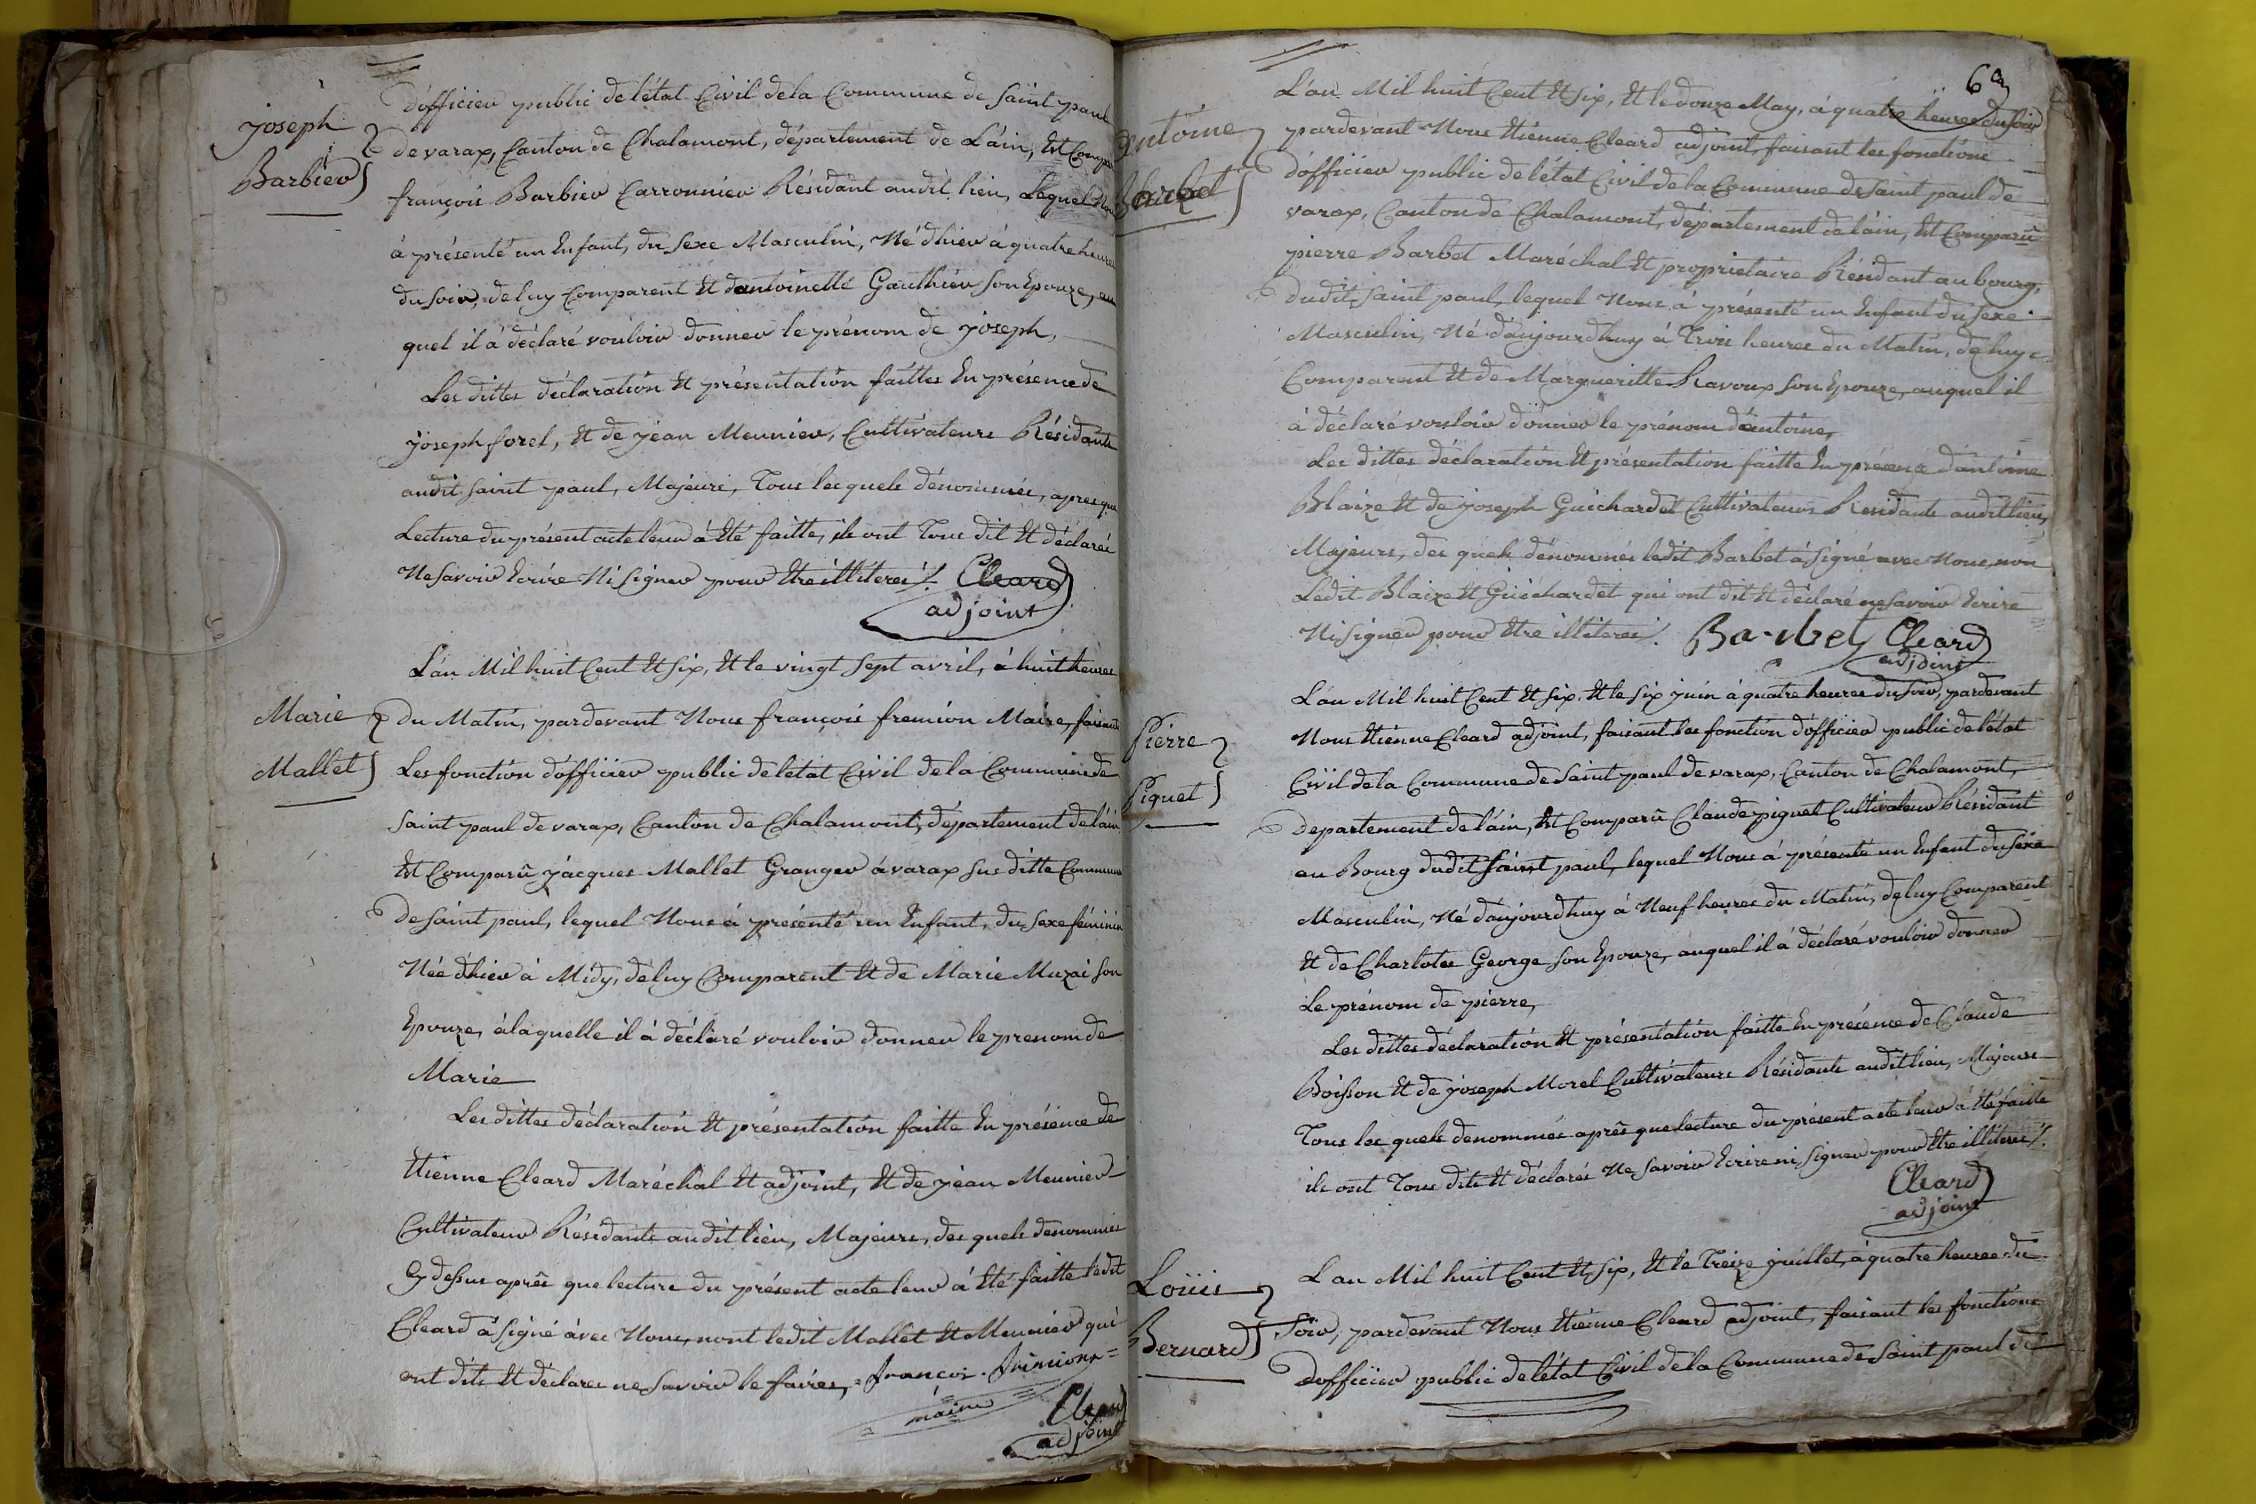 joseph
Barbier
d'officier public de l'état Civil de la Commune de Saint paul
de varax, Canton de Chalamont, département de L'ain, Est Compa
françois Barbier Carronnier Résidant audit lieu, Lequel Nous
à présenté un Enfant, du sexe Masculin, Né d'hier à quatre heures
du soir, de luy Comparent Et d'antoinette Gauthier son Epouze, au
quel il à déclaré vouloir donner le prénom de joseph,
Les dittes déclaration Et présentation faittes En présence de
joseph forel, Et de jean Meunier, Cultivateurs Résidants
audit saint paul, Majeurs, Tous les quels dénommés, apres que
Lecture du présent acte leur à Eté faitte, ils ont Tous dit Et déclarés
Ne savoir Ecrire Ni signer pour Etre illiterés ./. Cleard
adjoint
L'an Mil huit Cent Et six, Et le vingt sept avril, à huit heures
Marie
Mallet
du Matin, pardevant Nous françois fremion Maire, faisant
Les fonction d'officier public de l'état Civil de la Commune de
saint paul de varax, Canton de Chalamont, département de l'ain
Est Comparû jacques Mallet Granger à varax sus ditte Commune
de saint paul, lequel Nous à présenté un Enfant, du sexe féminin
Née d'hier à Midy, de luy Comparent Et de Marie Muzai son
Epouze, à laquelle il à déclaré vouloir donner le prenom de
Marie
Les dittes déclaration Et présentation faitte En présence de
Etienne Cleard Maréchal Et adjoint, Et de jean Meunier
Cultivateur Résidants audit lieu, Majeurs, des quels denommés
Cy dessus aprês que lecture du présent acte leur à Eté faitte ledit
Cleard à signé avec Nous, nont ledit Mallet Et Meunier qui
ont dits Et déclarés ne savoir le faires, = françois
maire
Cleard
adjoint
69
antoine
Barbet
L'an Mil huit Cent Et six, Et le douze May, à quatre heures du soir
pardevant Nous Etienne Cleard adjoint, faisant les fonctions
d'officier public de l'état Civil de la Commune de saint paul de
varax, Canton de Chalamont, département de l'ain, Est Comparû
pierre Barbet Maréchal Et proprietaire Résidant au bourg,
dudit saint paul, lequel Nous à présenté un Enfant du sexe
Masculin, Né d'aujourdhuy à Trois heures du Matin, de luy
Comparent Et de Margueritte Ravoux son Epouze, auquel il
à déclaré vouloir donner le prénom d'antoine,
Les dittes déclaration Et présentation faitte En présence d'antoine
Blaize Et de joseph Guichardet Cultivateurs Residants audit lieu,
Majeurs, des quels dénommés ledit Barbet à signé avec Nous, non
Ledit Blaize Et Guichardet qui ont dit Et déclaré ne savoir Ecrire
Ni signer pour Etre illiterés ./. Barbet Cleard
adjoint
Pierre
Piquet
L'an Mil huit Cent Et six, Et le six juin à quatre heures du soir, pardevant
Nous Etienne Cleard adjoint, faisant les fonction d'officier public de l'état
Civil de la Commune de saint paul de varax, Canton de Chalamont,
département de l'ain, Est Comparû Claude piquet Cultivateur Résidant
au Bourg dudit saint paul, lequel Nous à présenté un Enfant du sexe
Masculin, Né d'aujourdhuy à Neuf heures du Matin, de luy Comparent
Et de Charlotes George son Epouze, auquel il à déclaré vouloir donner
le prénom de pierre,
Les dittes déclaration Et présentation faitte En présence de Claude
Boisson Et de joseph Morel Cultivateurs Résidants audit lieu, Majeurs
Tous les quels denommés aprês que lecture du présent acte leur à Eté faitte
ils ont Tous dits Et déclarés Ne savoir Ecrire ni signer pour Etre illiterés ./.
Cleard
adjoint
Loüis
Bernard
L'an Mil huit Cent Et six, Et le Treize juillet, à quatre heures du
Soir, pardevant Nous Etienne Cleard adjoint, faisant les fonctions
d'officier public de l'état Civil de la Commune de saint paul de